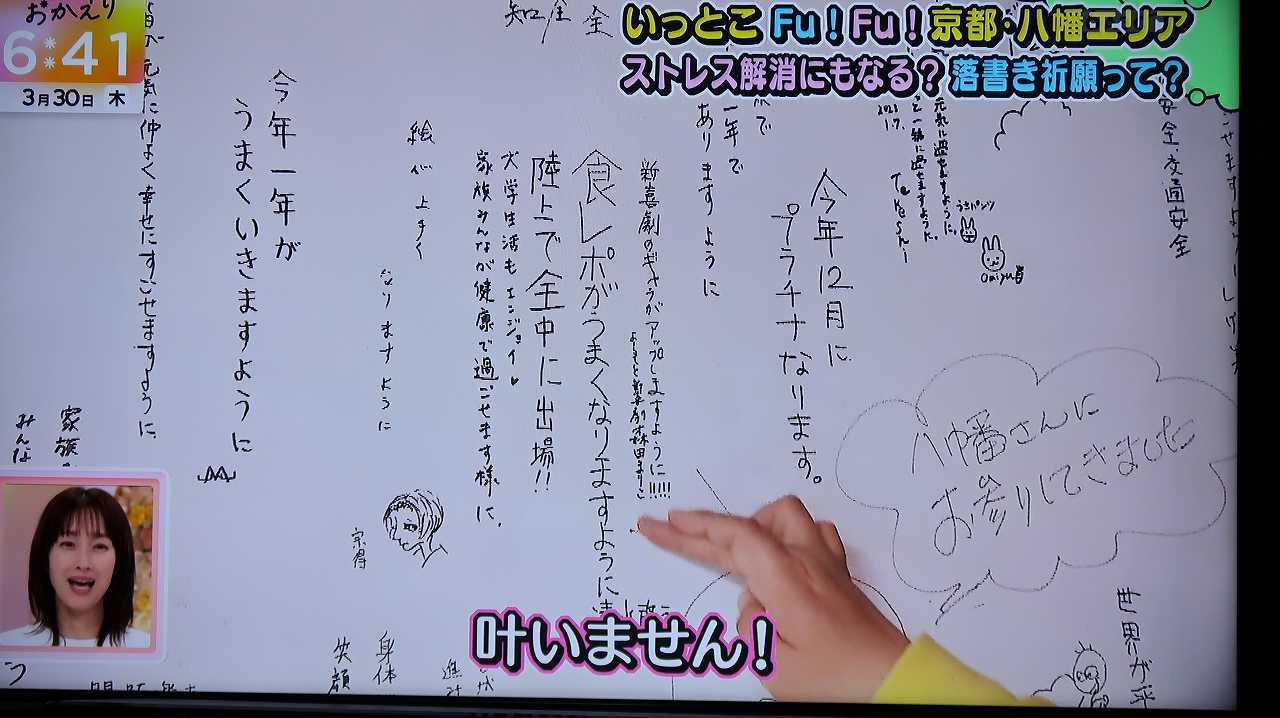 おかえり
6:41
3月30日 木
いっとこ Fu!Fu!京都・八幡エリア
ストレス解消にもなる?落書き祈願って?
安全・交通安全
元気に過ごせますように。
と一緒に過せますように。
2023
1.7.
うさパンツ
今年12月に
プラチナなります。
一年で
ありますように
新喜劇のギャラがアップしますように!!!!!
よしもと新喜劇森田まりこ
食レポがうまくなりますように
陸上で全中に出場!!
大学生活もエンジョイ
家族みんなが健康で過ごせます様に。
絵が上手く
なりますように
今年一年が
うまくいきますように
元気に仲よく幸せにすごせますように。
家族
みんな
八幡さんに
お参りしてきました
世界が平
身体
笑顔
叶いません!